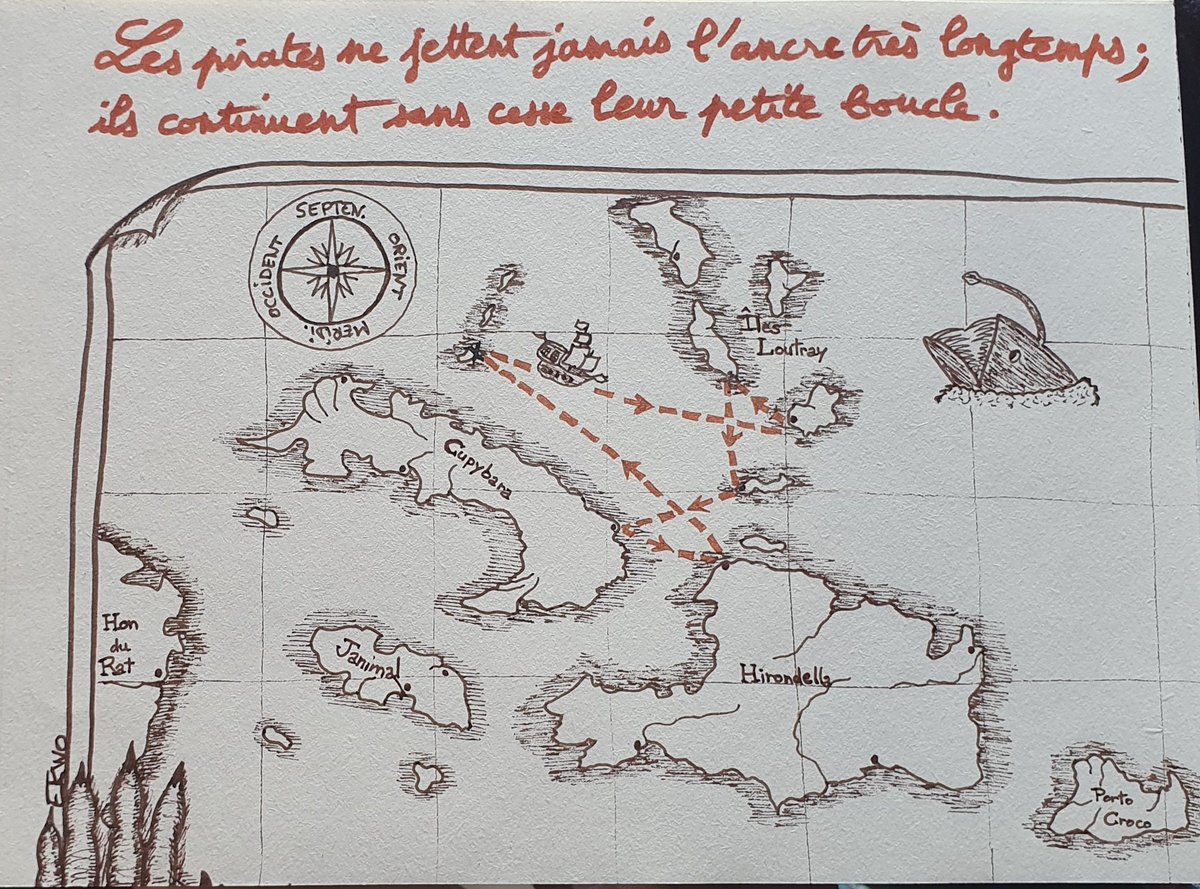 Les pirates ne jettent jamais l'ancre très longtemps;
ils continuent sans cesse leur petite boucle.
SEPTEN.
OCCIDENT
ORIENT
MERIDI.
Îles
Loutray
Cupybara
Hon
du
Rat
Janimal
Hirondella
Porto
Croco
EKWO